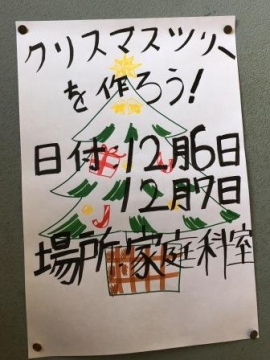 クリスマスツリー
を作ろう!
日付:12月6日
12月7日
場所:家庭科室